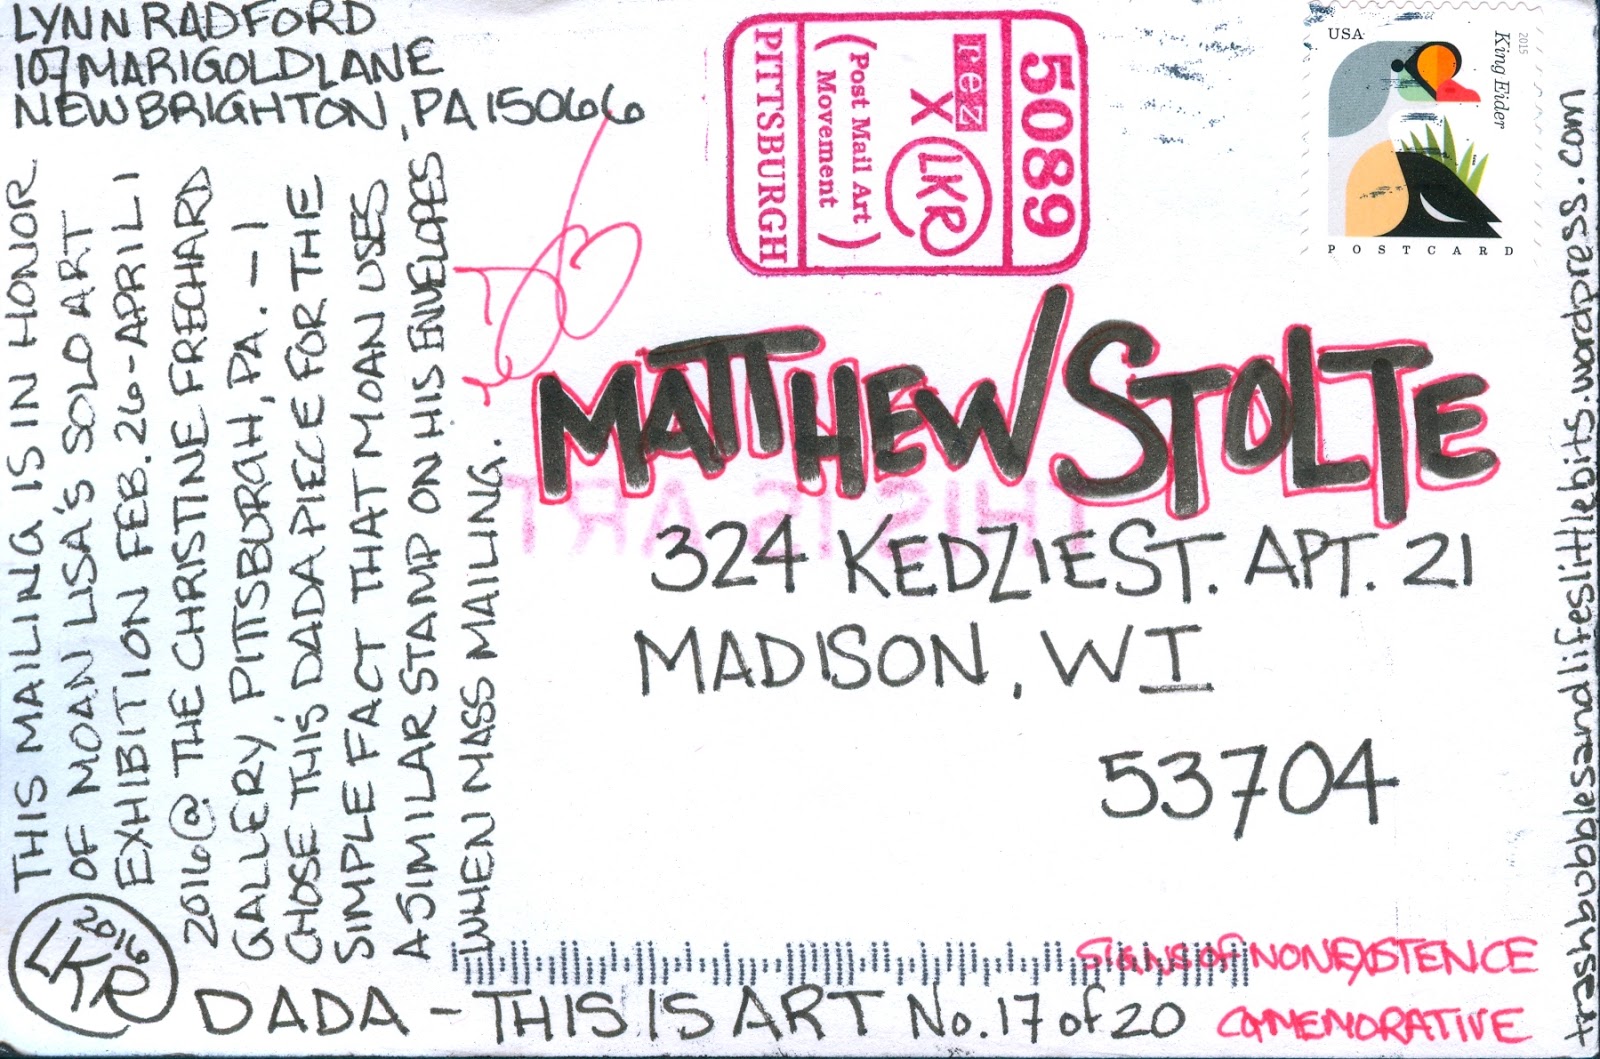 LYNN RADFORD
107 MARIGOLD LANE
NEW BRIGHTON, PA 15066
THIS MAILING IS IN HONOR
OF MOAN LISA'S SOLO ART
EXHIBITION FEB. 26 - APRIL 1
2016 @ THE CHRISTINE FRECHARD
GALLERY, PITTSBURGH, PA. - I
CHOSE THIS DADA PIECE FOR THE
SIMPLE FACT THAT MOAN USES
A SIMILAR STAMP ON HIS ENVELOPES
WHEN MASS MAILING.
5089
rez
X LKR
(Post Mail Art
Movement)
PITTSBURGH
USA
King Eider
2015
POSTCARD
MATTHEW STOLTE
THIS IS ART
324 KEDZIE ST. APT. 21
MADISON, WI
53704
SIGNS OF NONEXISTENCE
COMEMORATIVE
LKR
2016
DADA - THIS IS ART No. 17 of 20
trashbubblesandlifeslittlebits.wordpress.com